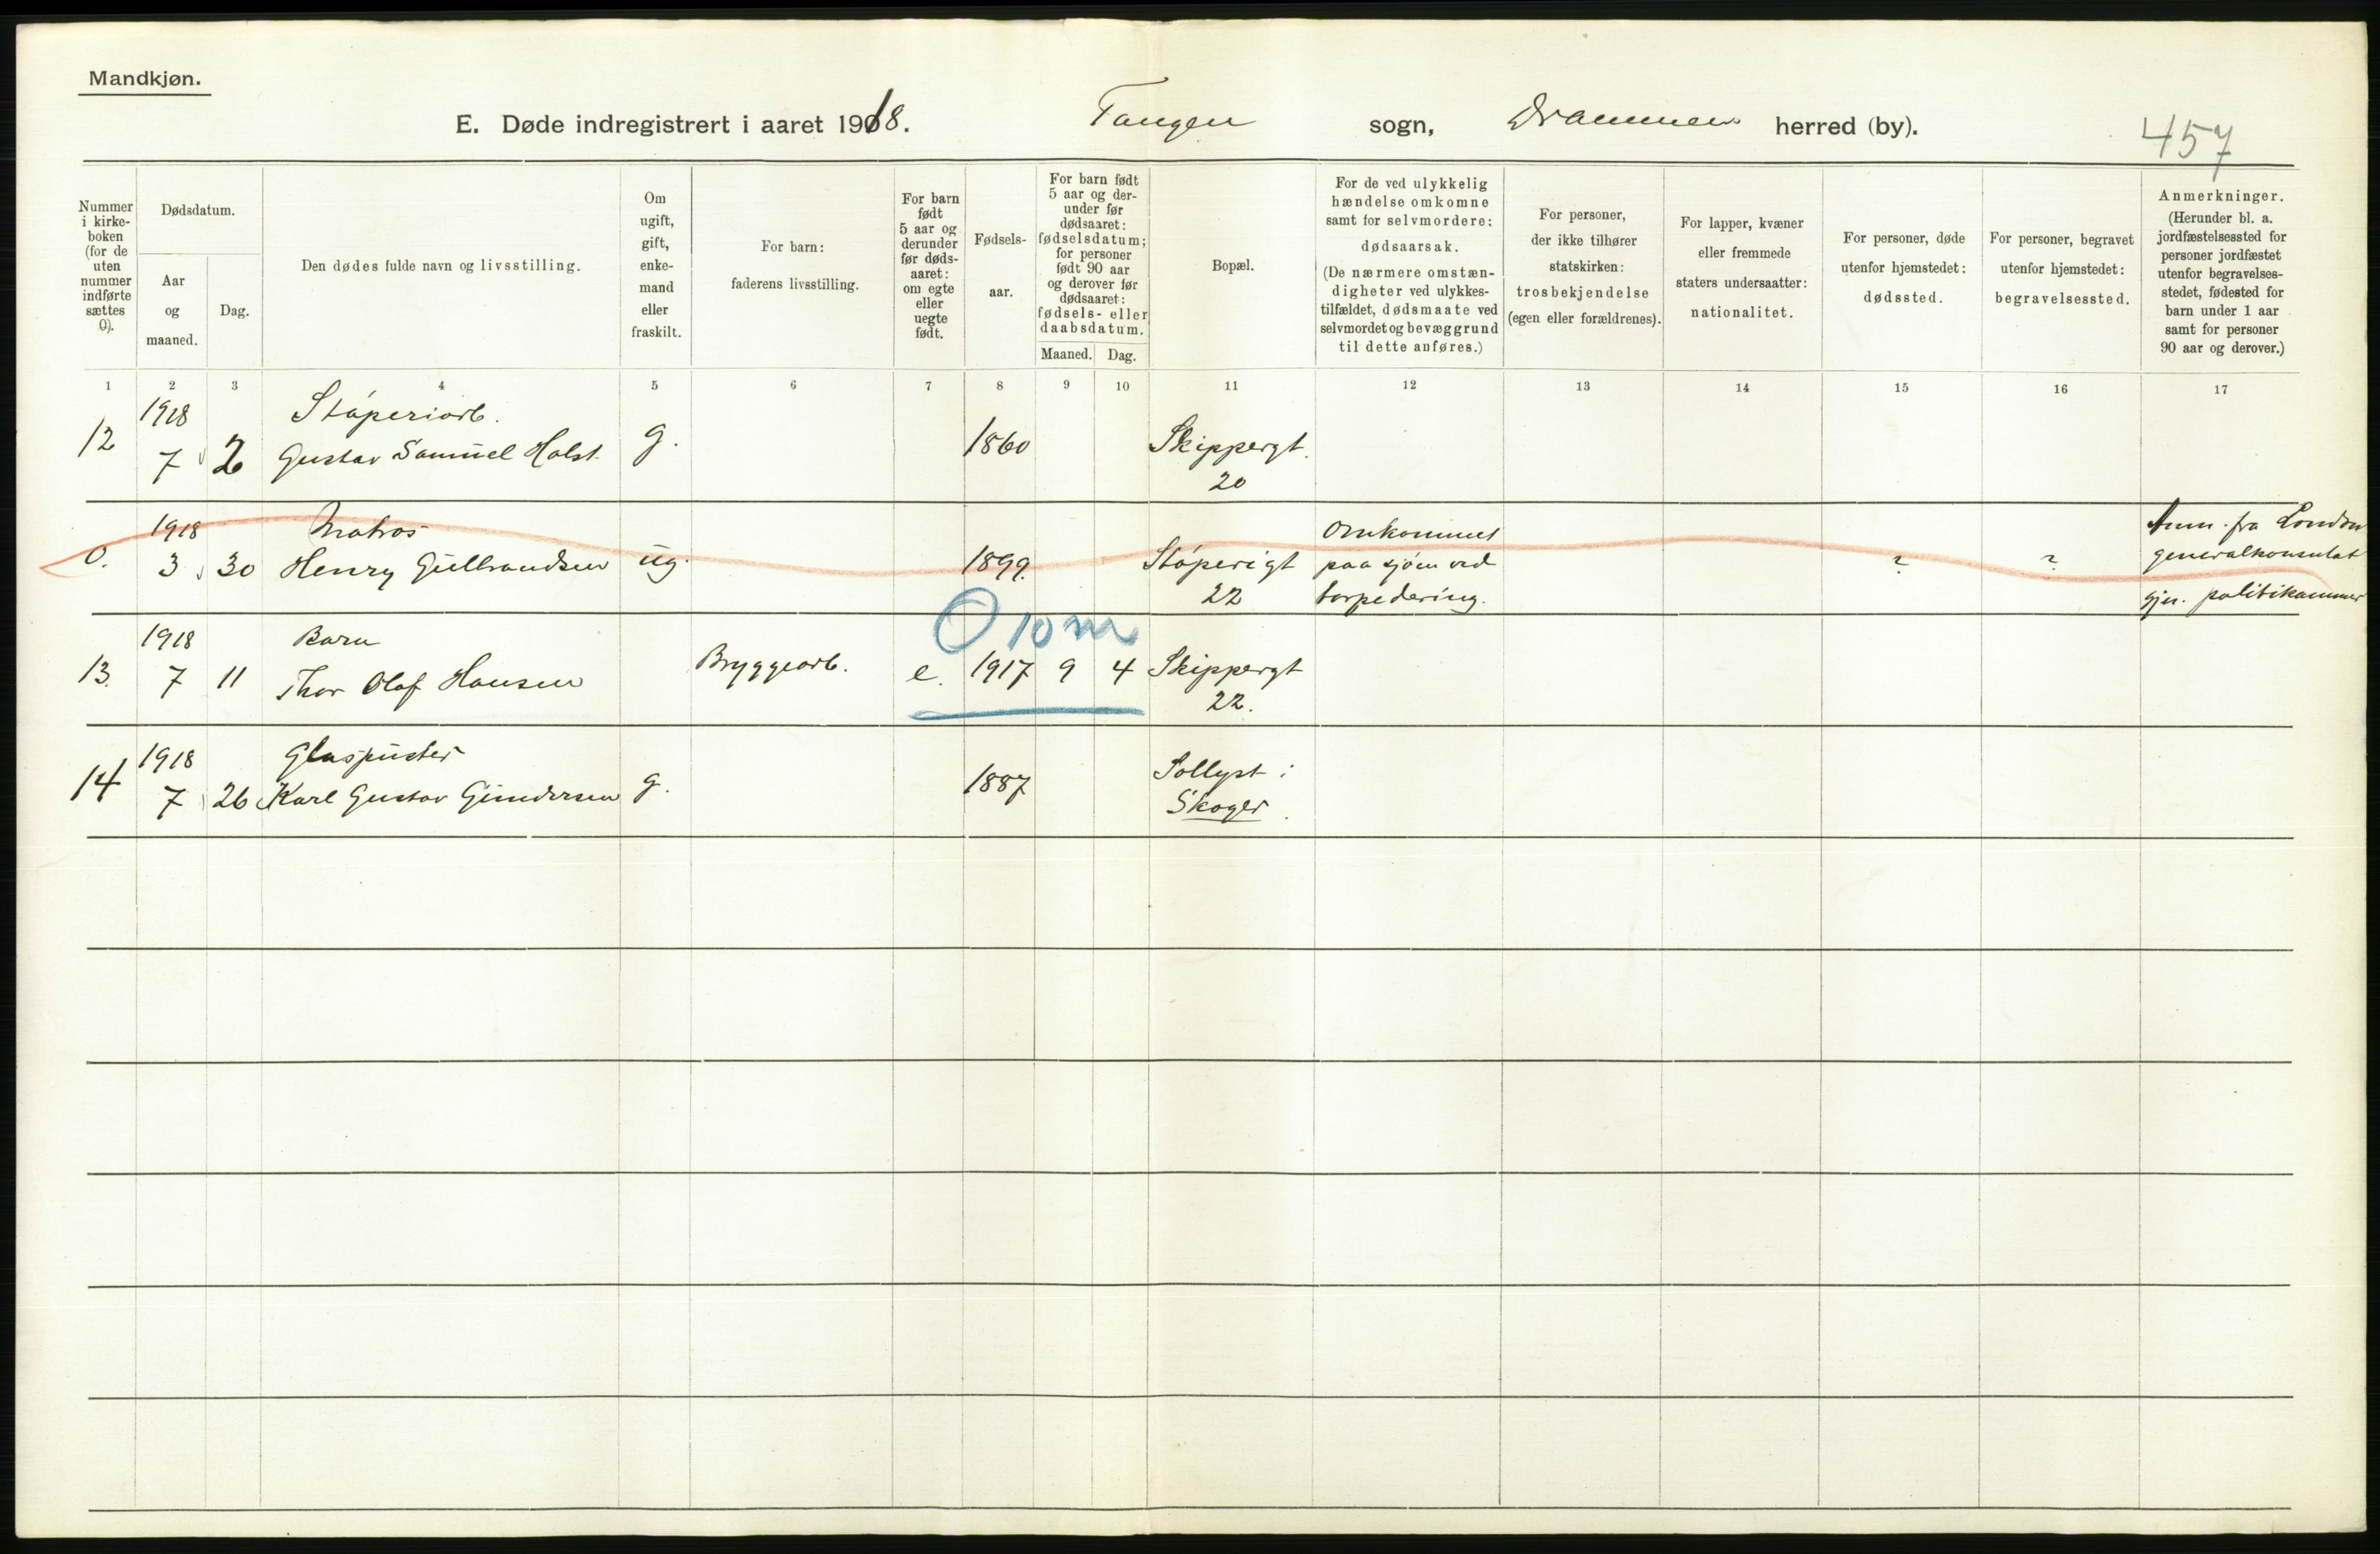 Mandkjøn.
E. Døde indregistrert i aaret 1918. Tangen sogn, Drammen herred (by).
457
Nummer i kirke-boken (for de uten nummer indførte sættes 0).
Dødsdatum.
Aar og maaned.
Dag.
Den dødes fulde navn og livsstilling.
Om ugift, gift, enke-mand eller fraskilt.
For barn: faderens livsstilling.
For barn født 5 aar og derunder før døds-aaret: om egte eller uegte født.
Fødsels-aar.
For barn født 5 aar og der-under før dødsaaret: fødselsdatum; for personer født 90 aar og derover før dødsaaret: fødsels- eller daabsdatum.
Maaned. Dag.
Bopæl.
For de ved ulykkelig hændelse omkomne samt for selvmordere: dødsaarsak. (De nærmere omstæn-digheter ved ulykkes-tilfældet, dødsmaate ved selvmordet og bevæggrund til dette anføres.)
For personer, der ikke tilhører statskirken: trosbekjendelse (egen eller forældrenes).
For lapper, kvæner eller fremmede staters undersaatter: nationalitet.
For personer, døde utenfor hjemstedet: dødssted.
For personer, begravet utenfor hjemstedet: begravelsessted.
Anmerkninger. (Herunder bl. a. jordfæstelsessted for personer jordfæstet utenfor begravelses-stedet, fødested for barn under 1 aar samt for personer 90 aar og derover.)
1 2 3 4 5 6 7 8 9 10 11 12 13 14 15 16 17
1918 Støperiarb.
12 7 2 Gustav Samuel Holst g. 1860 Skippergt.
20
1918 Matros Omkommet Anm. fra London
0. 3 30 Henry Gulbrandsen ug. 1899. Støperigt paa sjøen ved ? ? generalkonsulat
22 torpedering. gjn. politikammer
O 10 m
1918 Barn
13. 7 11 Thor Olaf Hansen Bryggearb. e. 1917 9 4 Skippergt
22.
1918 Glaspuster Sollyst i
14 7 26 Karl Gustav Gundersen g. 1887 Skoger.